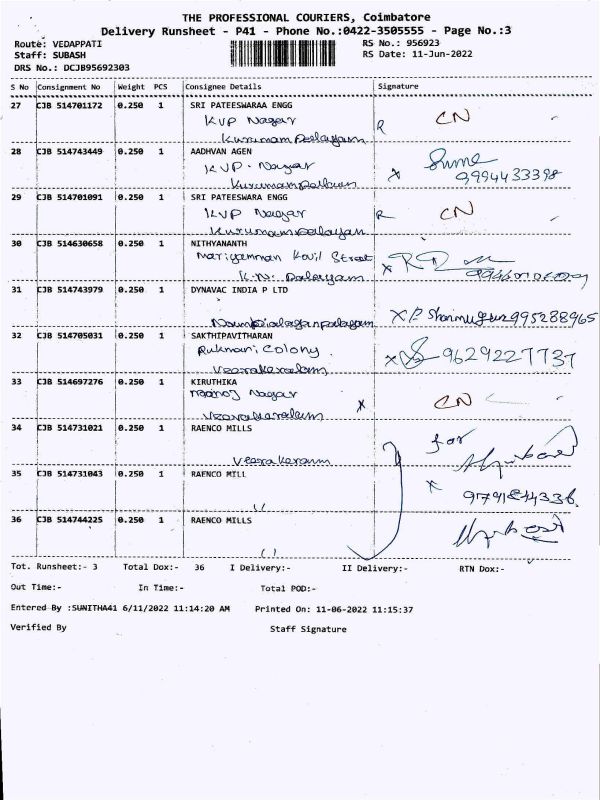 THE PROFESSIONAL COURIERS, Coimbatore
Delivery Runsheet - P41 - Phone No.:0422-3505555 - Page No.:3
Route: VEDAPPATI RS No.: 956923
Staff: SUBASH RS Date: 11-Jun-2022
DRS No.: DCJB95692303
S No Consignment No Weight PCS Consignee Details Signature
27 CJB 514701172 0.250 1 SRI PATEESWARAA ENGG
KVP Nagar R CN
Kurumampalayam
28 CJB 514743449 0.250 1 AADHVAN AGEN
KVP. Nagar x
9994433398
29 CJB 514701091 0.250 1 SRI PATEESWARA ENGG
KVP Nagar R CN
Kurumampalayam
30 CJB 514630658 0.250 1 NITHYANANTH
Mariyamman Kovil Street x
K.N. Palayam
31 CJB 514743979 0.250 1 DYNAVAC INDIA P LTD
x
32 CJB 514705031 0.250 1 SAKTHIPAVITHARAN
Rukmani Colony x 9629227737
Veerakeralam
33 CJB 514697276 0.250 1 KIRUTHIKA
Manoj Nagar x CN
Veerakeralam
34 CJB 514731021 0.250 1 RAENCO MILLS
for
35 CJB 514731043 0.250 1 RAENCO MILL
x
36 CJB 514744225 0.250 1 RAENCO MILLS
Tot. Runsheet:- 3 Total Dox:- 36 I Delivery:- II Delivery:- RTN Dox:-
Out Time:- In Time:- Total POD:-
Entered By :SUNITHA41 6/11/2022 11:14:20 AM Printed On: 11-06-2022 11:15:37
Verified By Staff Signature